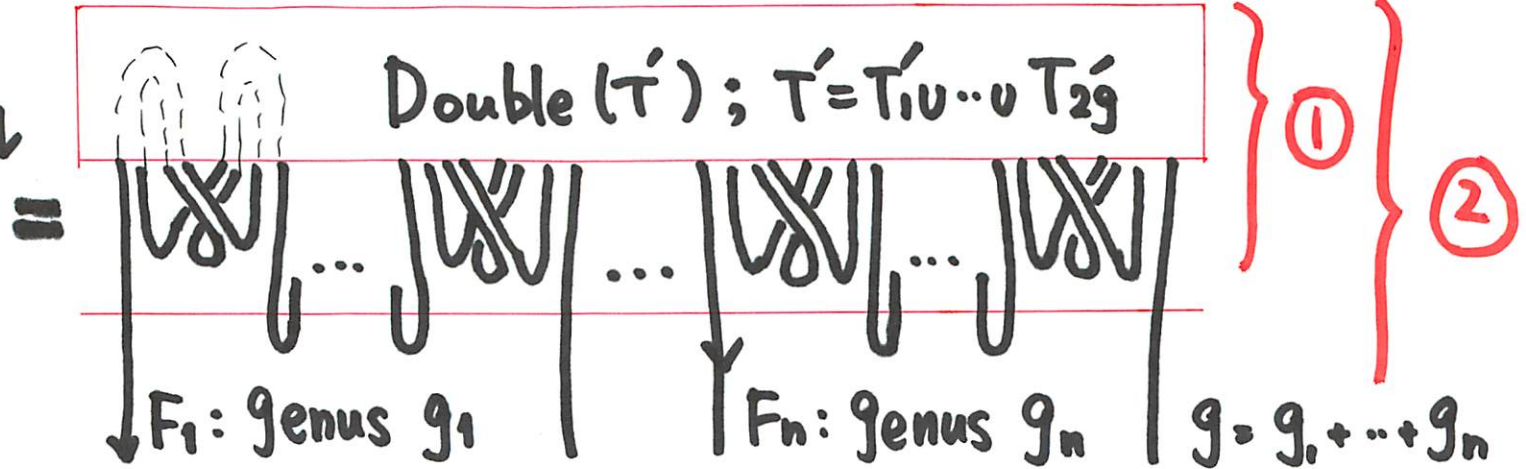 Double (T′) ; T′ = T′₁ ∪ ·· ∪ T′₂g
①
②
=
...
...
...
F₁ : genus g₁
Fₙ : genus gₙ
g = g₁ + ·· + gₙ